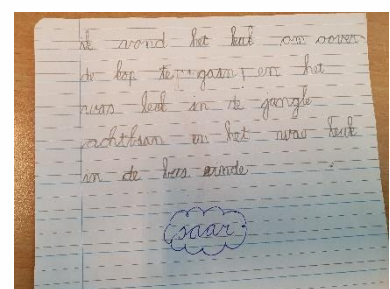 ik vond het leuk om oover
de kop te gaan en het
was leuk in de jungle
achtbaan en het was leuk
in de bus
saar